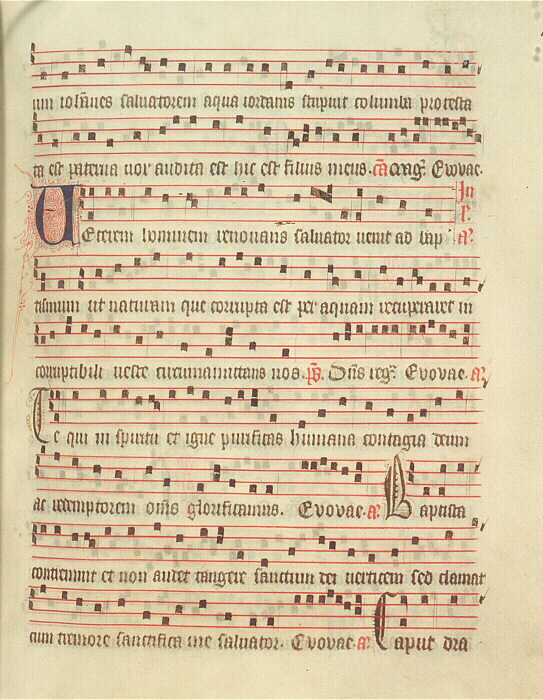 um iohannes saluatorem aqua iordanis sapiut columba protesta
ta est paterna uor audita est hic est filius meus. ca Evovae.
In
Veterem hominem renouans saluator uenit ad bap
tismum ut naturam que corrupta est per aquam recuperaret in
corruptibili ueste circumamittans nos. ps. Dns reg. Evovae. a
Te qui in spiritu et igne purificas humana contagia deum
ac redemptorem oms glorificamus. Evovae. a Baptista
contremuit et non audet tangere sanctum dei uerticem sed clamat
cum tremore sanctifica me saluator. Evovae. a Caput dra